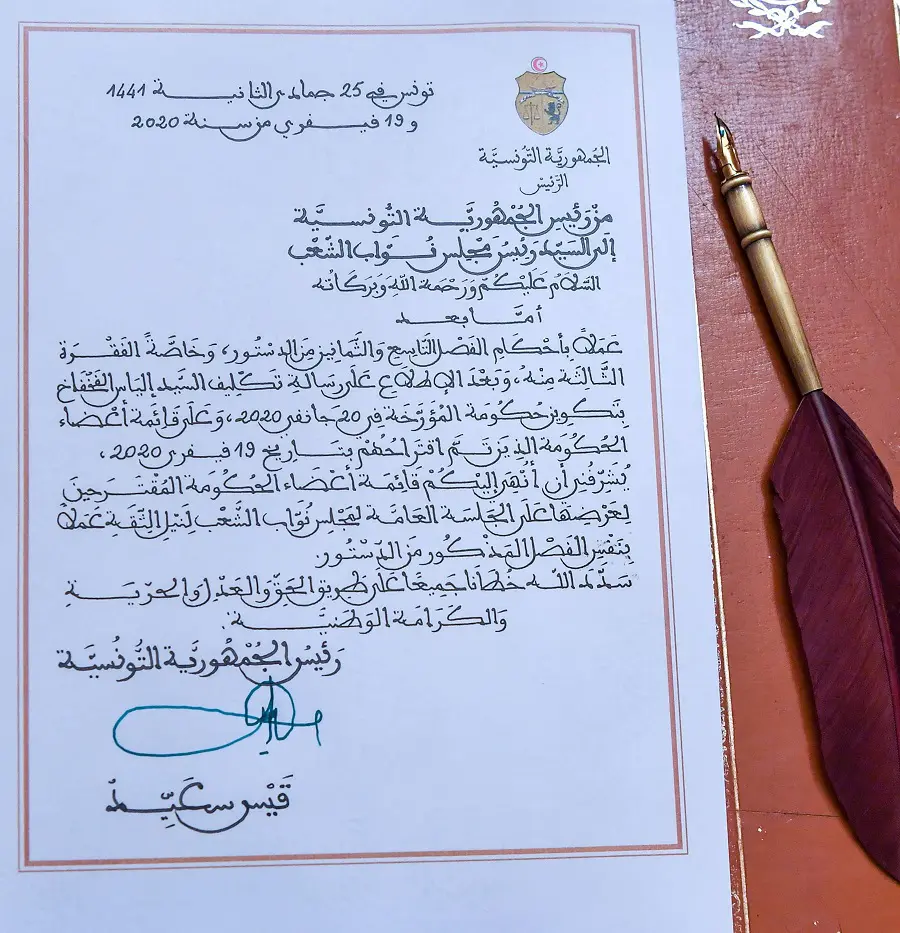 تونس في 25 جمادى الثانية 1441
و 19 فيفري من سنة 2020
الجُمهوريَّة التّونسيَّة
الرّئيسُ
من رَئيس الجُمْهُوريَّة التُّونسيَّة
إلى السيّد رَئيسُ مَجْلس نُوَّاب الشّعْب
السّلامُ عَليْكُمْ وَرَحْمة اللّه وَبَرَكَاتُه
أمَّا بعد
عَمَلاً بأحْكَام الفَصْل التَّاسع والثَّمانين منَ الدستُور، وَخَاصَّةً الفَقْرة
الثَّالثة منْهُ، وَبَعْدَ الإطّلاع عَلَى رسَالة تَكْليف السيّد إليَاس الفَخْفَاخ
بتَكْوين حُكُومَة المُؤرَّخَة في 20 جَانفي 2020، وَعَلَى قَائمة أعْضاء
الحُكُومَة الذينَ تَمَّ اقْتراحُهُم بتَاريخ 19 فيفري 2020،
يُشَرّفُني أن أُنْهيَ إليْكُمْ قَائمة أعْضَاء الحُكُومَة المُقْتَرحينَ
لعَرْضهَا عَلَى الجَلْسَة العَامَّة لمَجْلس نُوَّاب الشَّعْب لنَيْل الثّقَة عَمَلاً
بنَفْس الفَصْل المَذْكُور منَ الدّسْتُور.
سَدَّدَ اللّه خُطَانَا جَميعًا عَلَى طَريق الحَقّ وَالعَدْل والحريَّة
وَالكَرَامَة الوَطَنيَّة.
رَئيسُ الجُمْهُوريَّة التُّونُسيَّة
قَيْس سَعَيّد